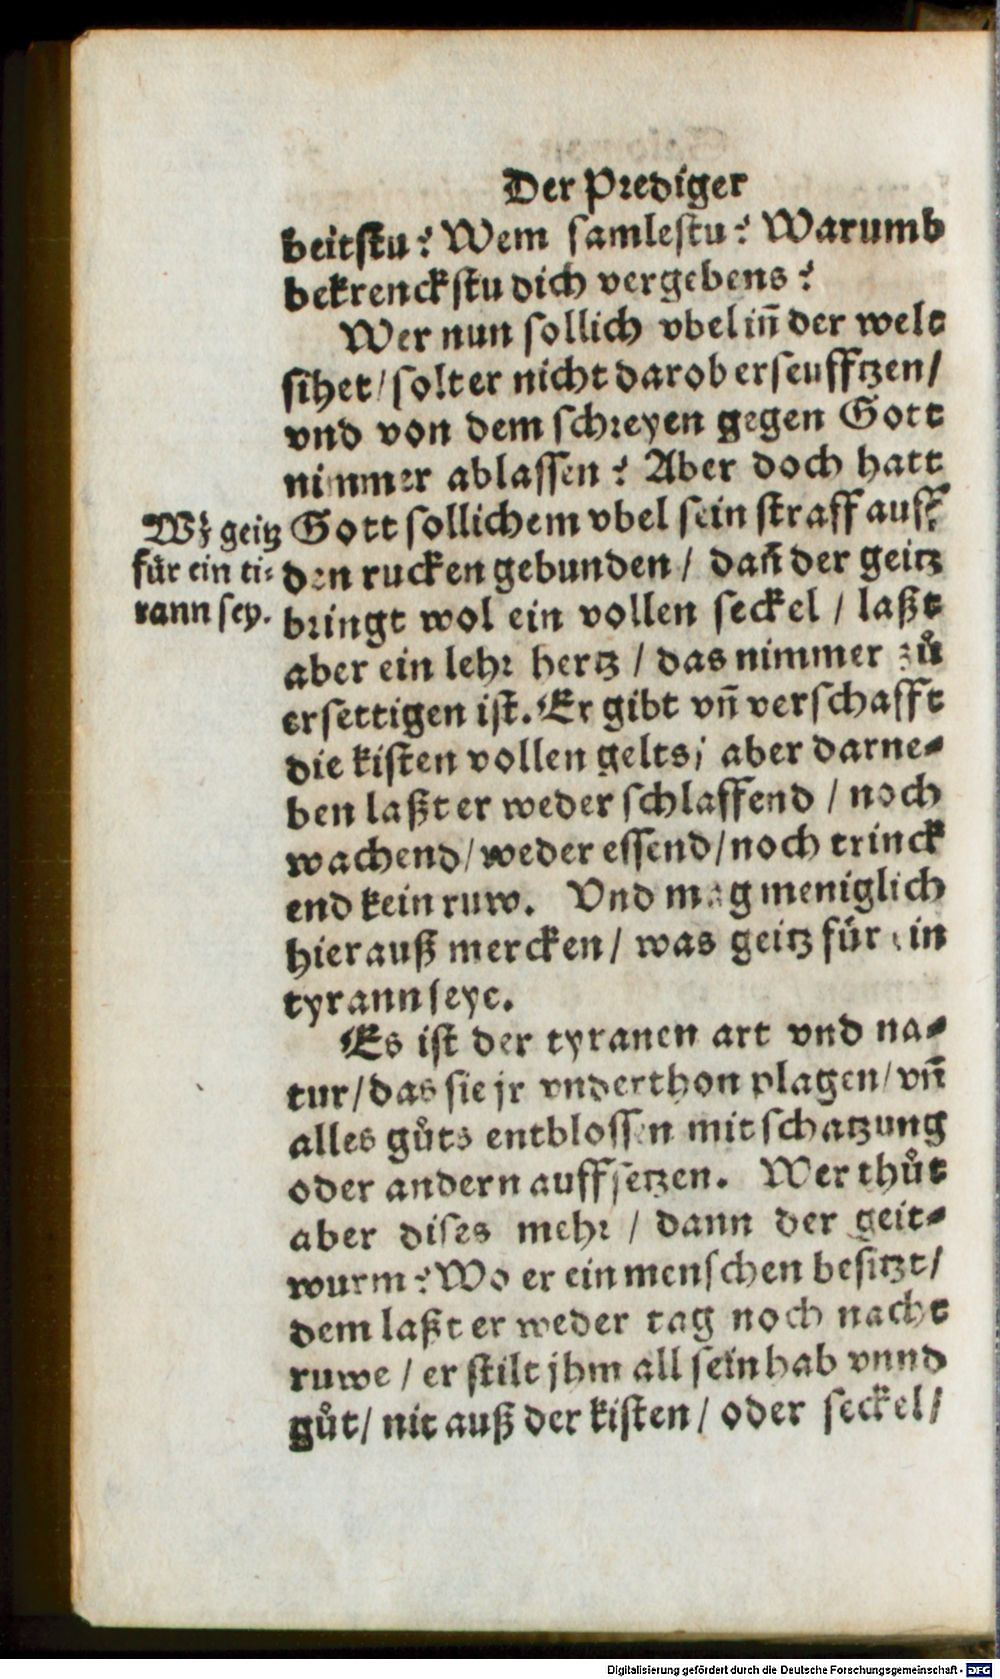 Der Prediger
beitstu? Wem samlestu? Warumb
bekrenckstu dich vergebens?
Wer nun sollich vbel in̄ der welt
sihet/ solt er nicht darob erseufftzen/
vnd von dem schreyen gegen Gott
nimmer ablassen? Aber doch hatt
Gott sollichem vbel sein straff auff
den rucken gebunden/ dan̄ der geitz
bringt wol ein vollen seckel / laßt
aber ein lehr hertz / das nimmer zů
ersettigen ist. Er gibt vn̄ verschafft
die kisten vollen gelts; aber darne-
ben laßt er weder schlaffend / noch
wachend/ weder essend/ noch trinck
end kein ruw. Vnd mag meniglich
hierauß mercken/ was geitz für ein
tyrann seye.
Es ist der tyranen art vnd na-
tur/ das sie jr vnderthon plagen/ vn̄
alles gůts entblossen mit schatzung
oder andern auffsetzen. Wer thůt
aber dises mehr / dann der geit-
wurm? Wo er ein menschen besitzt/
dem laßt er weder tag noch nacht
ruwe / er stilt jhm all sein hab vnnd
gůt/ nit auß der kisten/ oder seckel/
Wz geitz
für ein ti-
rann sey.
Digitalisierung gefördert durch die Deutsche Forschungsgemeinschaft - DFG